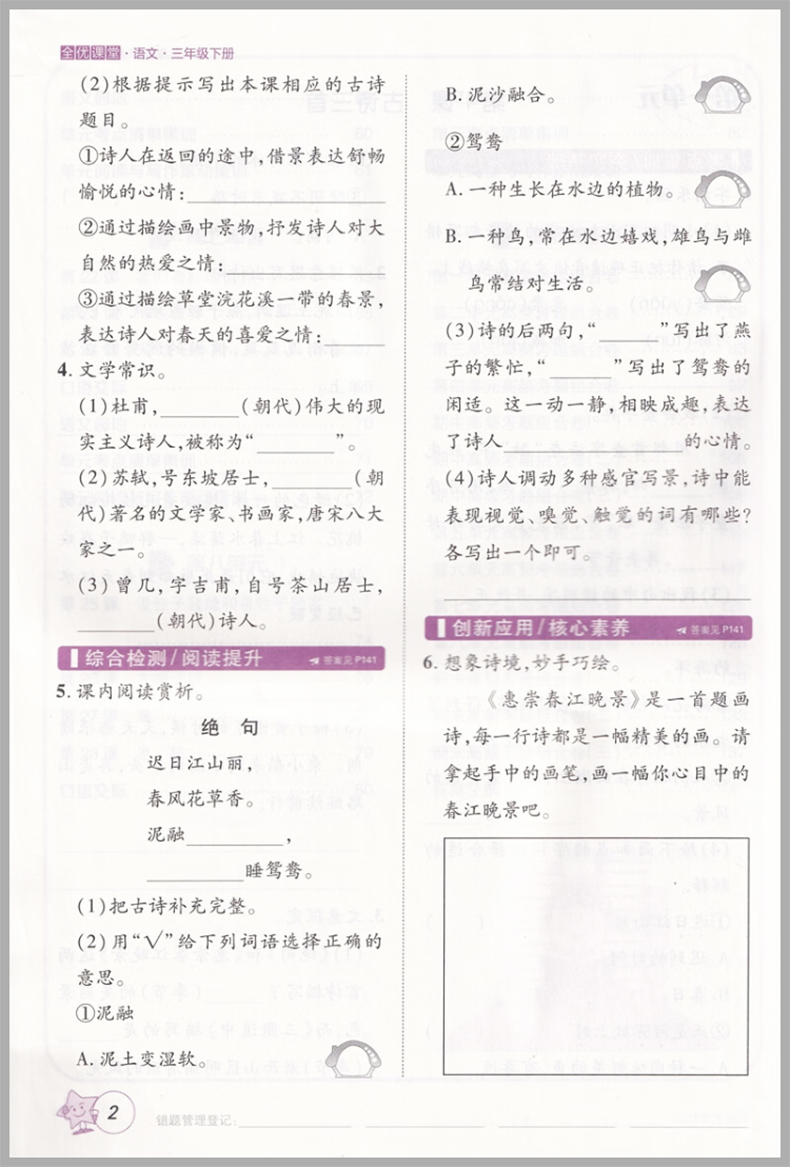 全优课堂·语文·三年级下册
(2)根据提示写出本课相应的古诗
题目。
①诗人在返回的途中,借景表达舒畅
愉悦的心情:
②通过描绘画中景物,抒发诗人对大
自然的热爱之情:
③通过描绘草堂浣花溪一带的春景,
表达诗人对春天的喜爱之情:
4.文学常识。
(1)杜甫,________(朝代)伟大的现
实主义诗人,被称为“________”。
(2)苏轼,号东坡居士,________(朝
代)著名的文学家、书画家,唐宋八大
家之一。
(3)曾几,字吉甫,自号茶山居士,
________(朝代)诗人。
综合检测/阅读提升 答案见P141
5.课内阅读赏析。
绝 句
迟日江山丽,
春风花草香。
泥融________,
________睡鸳鸯。
(1)把古诗补充完整。
(2)用“√”给下列词语选择正确的
意思。
①泥融
A.泥土变湿软。
B.泥沙融合。
②鸳鸯
A.一种生长在水边的植物。
B.一种鸟,常在水边嬉戏,雄鸟与雌
鸟常结对生活。
(3)诗的后两句,“________”写出了燕
子的繁忙,“________”写出了鸳鸯的
闲适。这一动一静,相映成趣,表达
了诗人________的心情。
(4)诗人调动多种感官写景,诗中能
表现视觉、嗅觉、触觉的词有哪些?
各写出一个即可。
创新应用/核心素养 答案见P141
6.想象诗境,妙手巧绘。
《惠崇春江晚景》是一首题画
诗,每一行诗都是一幅精美的画。请
拿起手中的画笔,画一幅你心目中的
春江晚景吧。
2
错题管理登记: